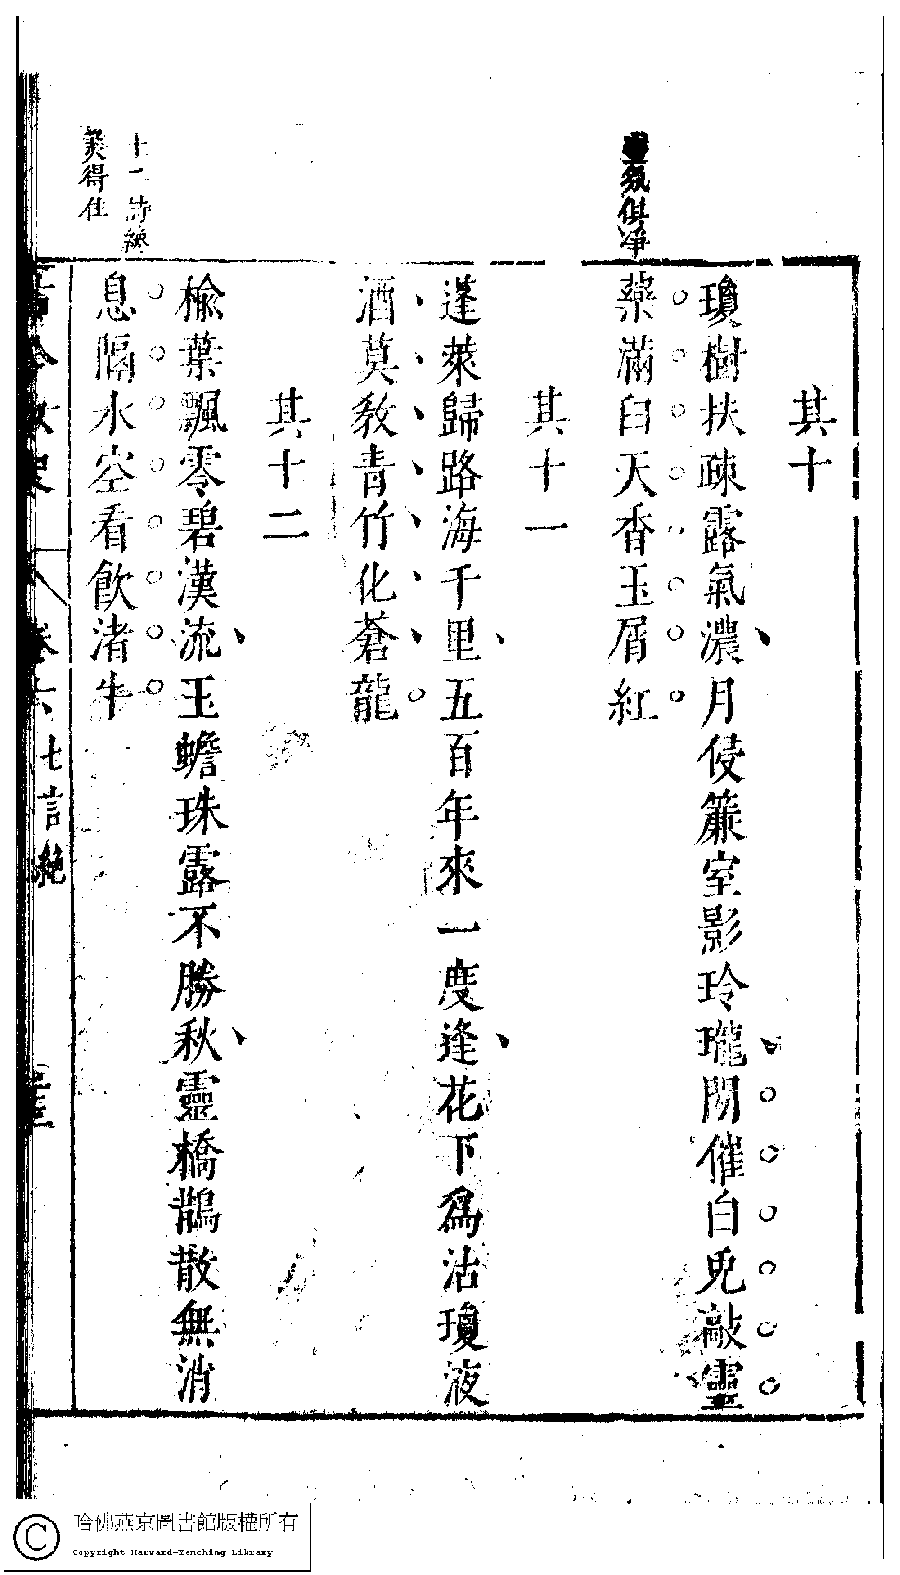 其十
瓊樹扶疎露氣濃月侵簾室影玲瓏閑催白兎敲靈
藥滿臼天香玉屑紅
其十一
蓬萊歸路海千里五百年來一度逢花下爲沽瓊液
酒莫教青竹化蒼龍
其十二
楡葉飄零碧漢流玉蟾珠露不勝秋靈橋鵲散無消
息隔水空看飲渚牛
氛俱凈
十二詩總
美得佳
卷六
七言絶
哈佛燕京圖書館版權所有
Copyright Harvard-Yenching Library